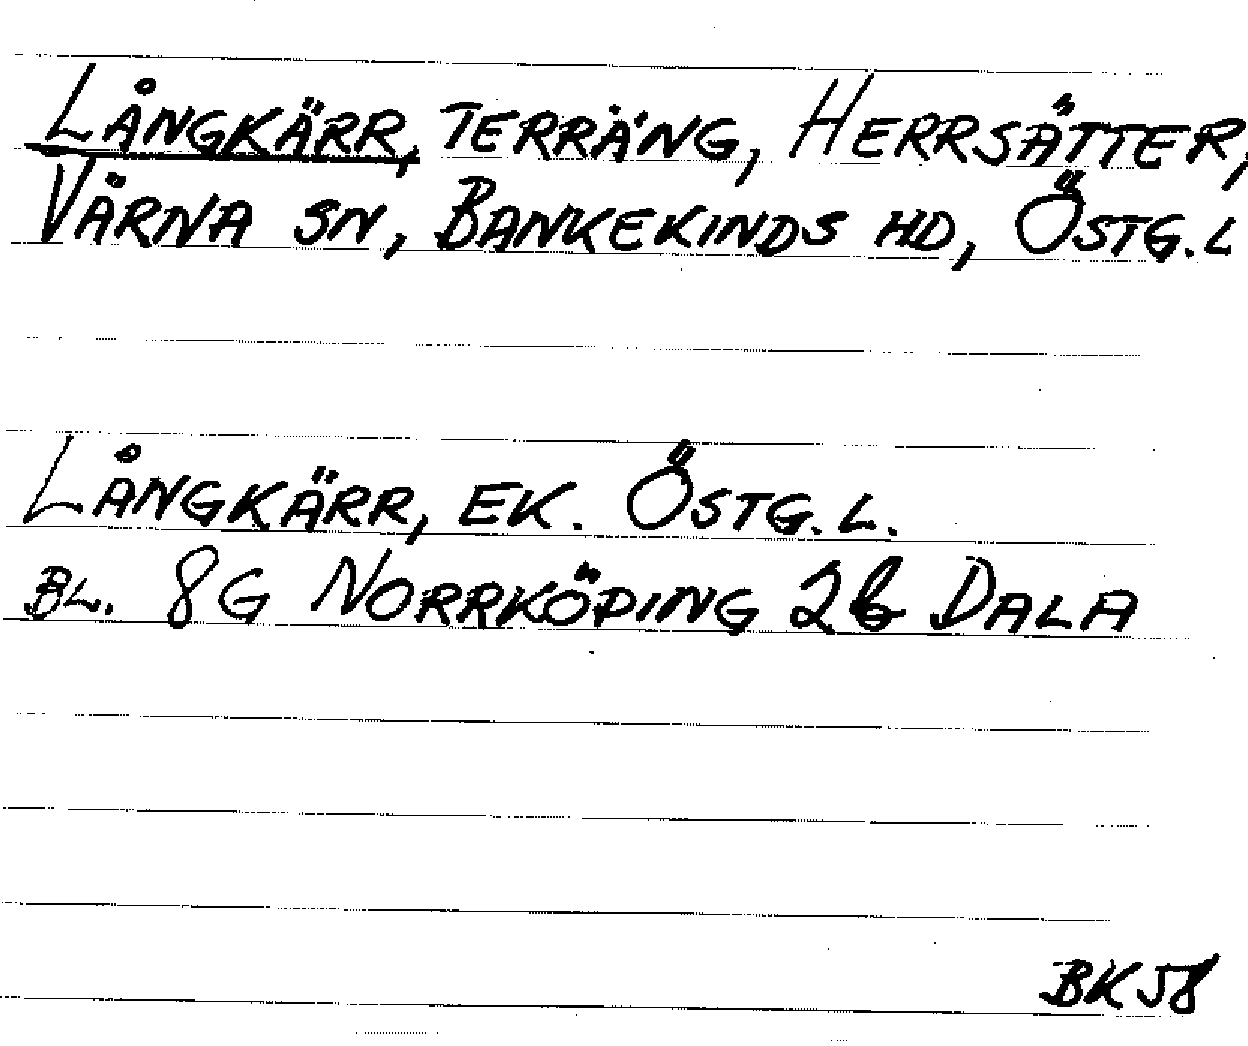 LÅNGKÄRR, TERRÄNG, HERRSÄTTER,
VÄRNA SN, BANKEKINDS HD, ÖSTG.L
LÅNGKÄRR, EK. ÖSTG.L.
BL. 8G NORRKÖPING 2b DALA
BK58